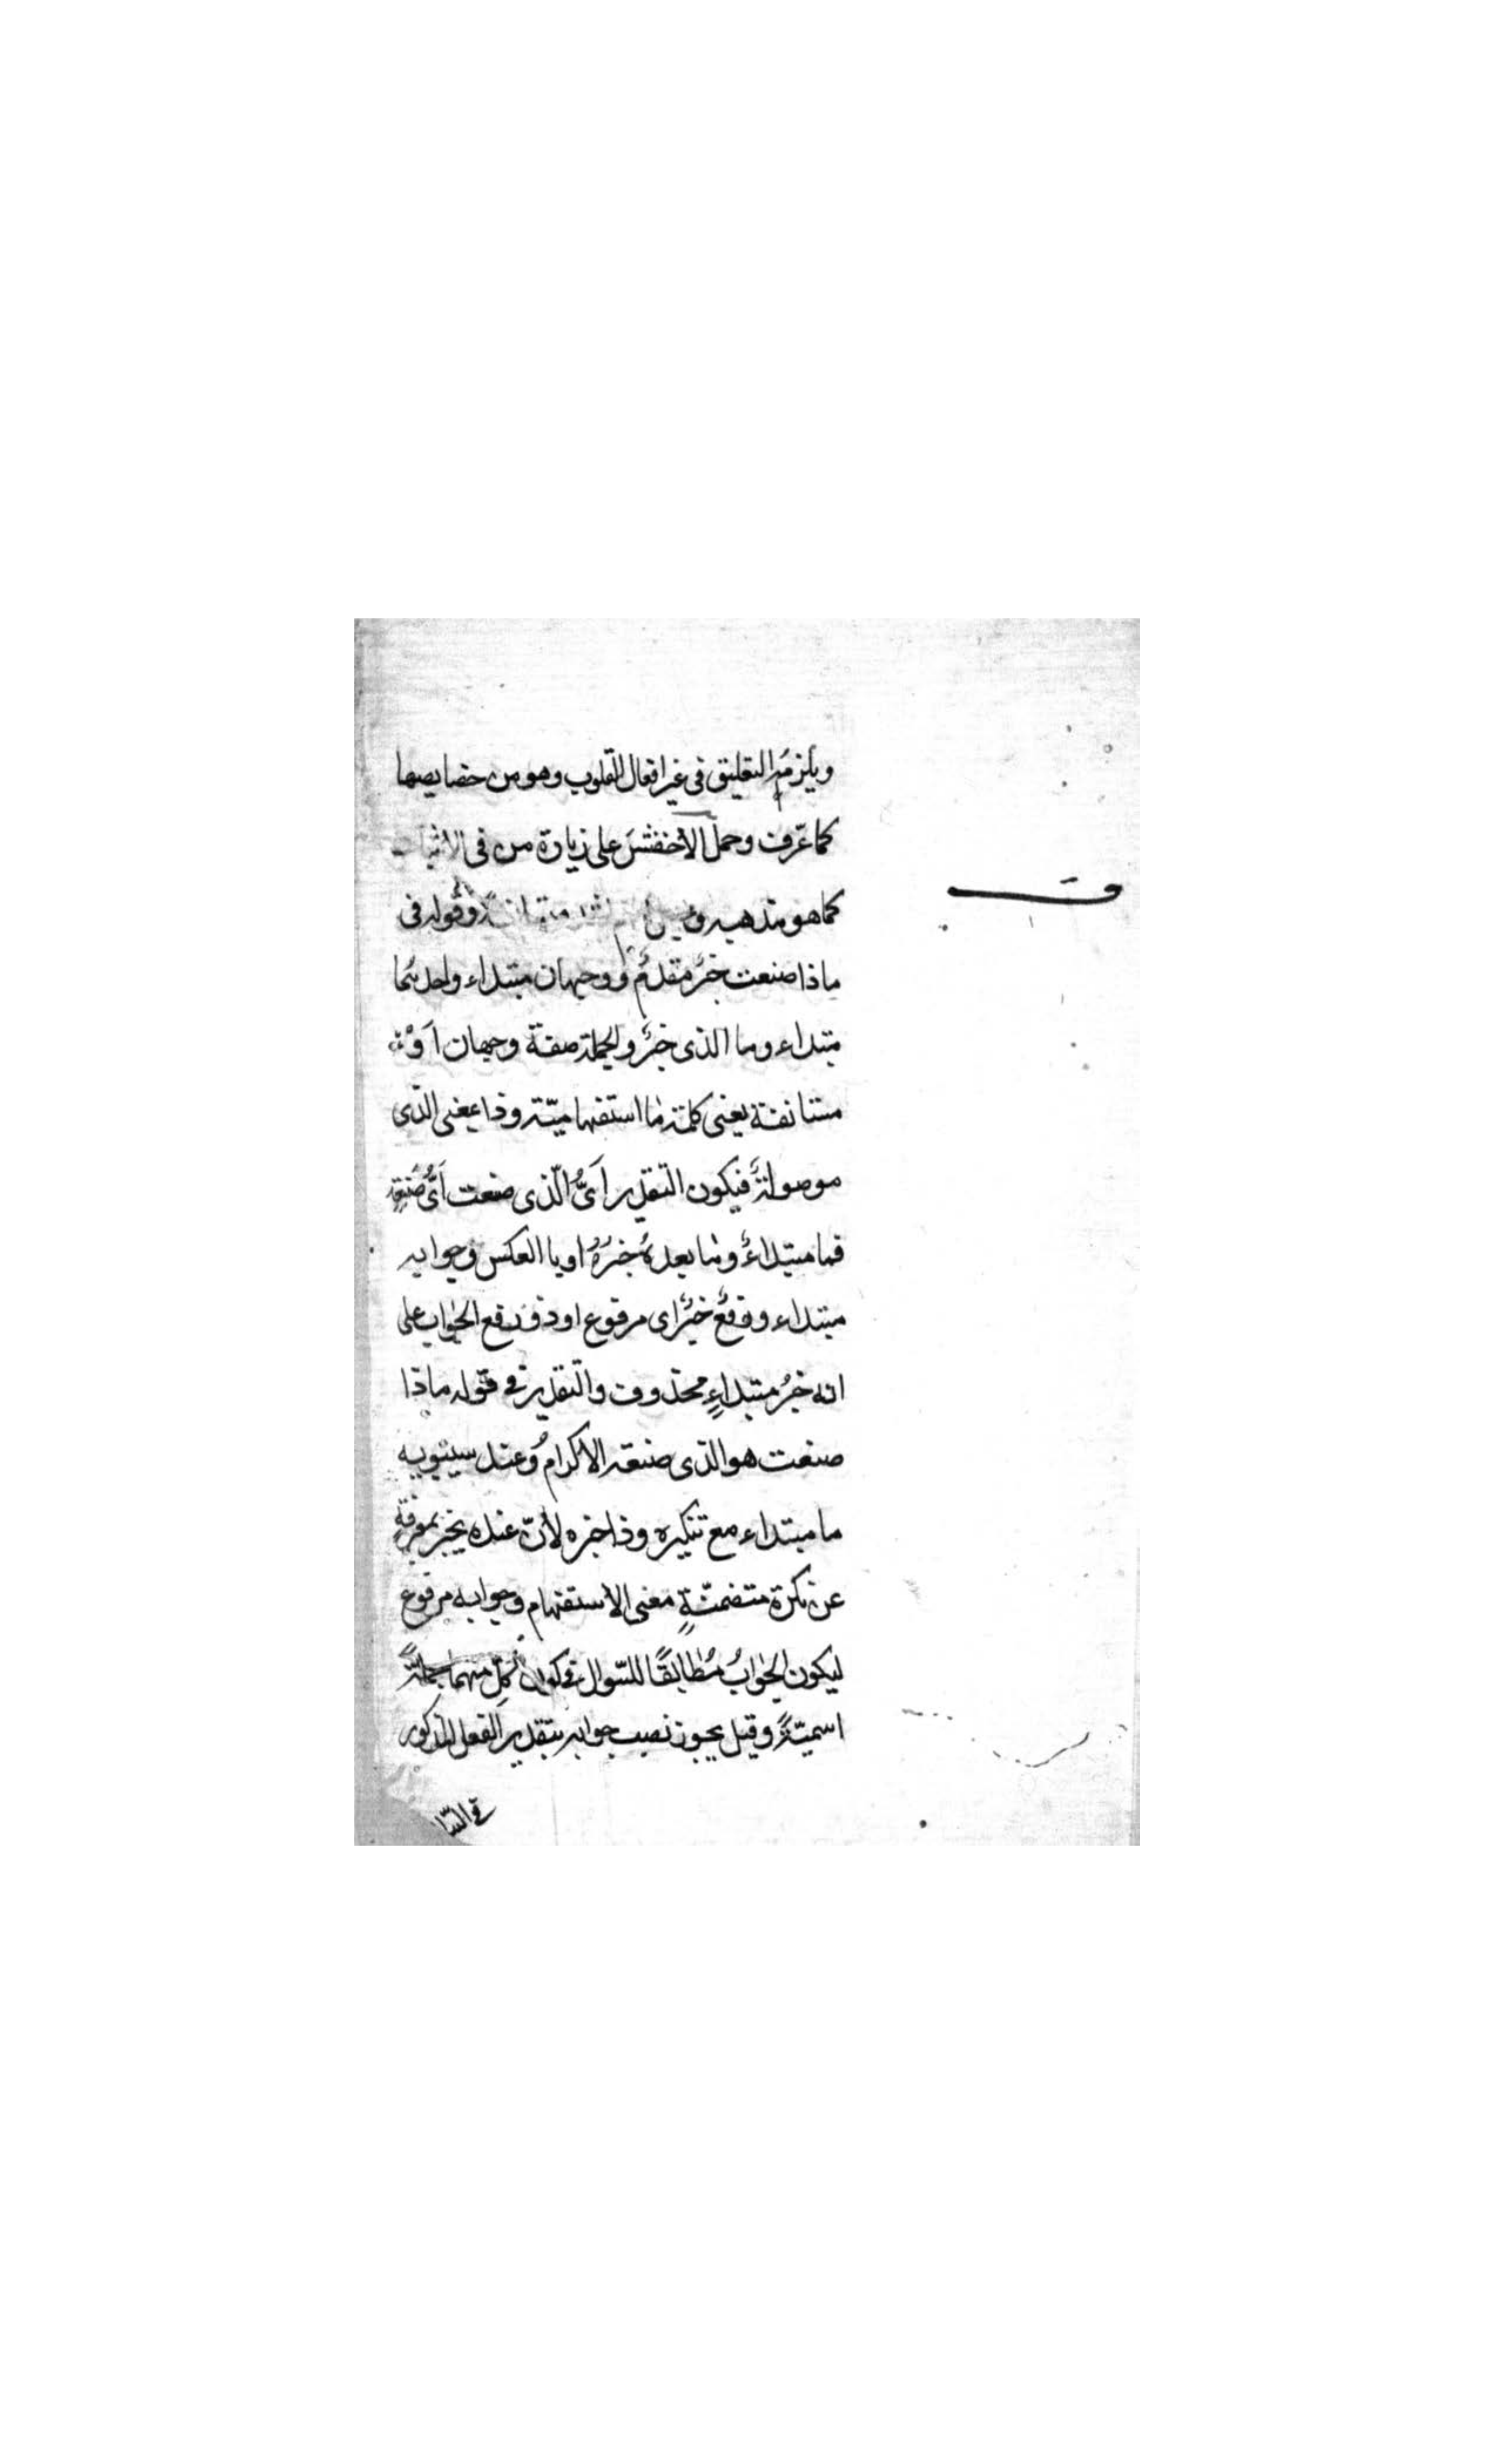 ويلزمه التعليق فى غير افعال القلوب وهو من خصايصها
كما عرفت وحمل الأخفش على زيادة من فى الاثبات
كما هو مذهبه وقوله فى
ماذا صنعت خبر مقدم ووجهان مبتداء واحدهما
مبتداء وما الذى خبر والجملة صفة وجهان او
مستانفة يعنى كلمة ما استفهاميّة وذا بمعنى الذى
موصولة فيكون التقدير اىُّ الّذى صنعت اىُّ صنعته
فما مبتداءٌ وما بعده خبرُهُ او با العكس وجوابه
مبتداء ورفعٌ خبرٌ اى مرفوع اوذو رفع الجواب على
انه خبرُ مبتداءٍ محذوف والتقدير فى قوله ماذا
صنعت هو الذى صنعته الاكرامُ وعند سيبويه
ما مبتداء مع تنكيره وذا خبره لأنّ عنده يخبر بمعرفةٍ
عن نكرة متضمنّةٍ معنى الاستفهام وجوابه مرفوع
ليكون الجوابُ مُطابقًا للسّوال فى كون كلّ منهما جملةً
اسميّةً وقيل يجوز نصب جوابه بتقدير الفعل المذكور